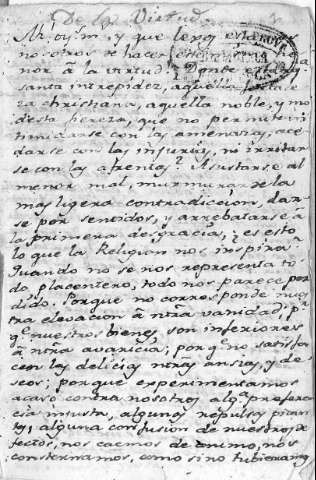 De la Virtud
y que lexos está de
nosotros el hacer
nor â la virtud! Donde está
santa intrepidez, aquella fortale
za christiana, aquella noble, y mo
desta fiereza, que no permite in
timidarse con las amenazas, ace
darse con las injurias, ni irritar
se con las afrentas? Asustarse al
menor mal, murmurar de la
mas ligera contradiccion, dar
se por sentidos, y arrebatarse â
la primera desgracia, es esto
lo que la Religion nos inspira?
Quando no se nos representa to
do placentero, todo nos parece per
dido. Porque no corresponde nues
tra elevacion â ntra vanidad, pr
qe nuestros bienes son inferiores
â ntra avaricia; porqe no satisfa
cen las delicias ntras ansias, y de
seos; porque experimentamos
acaso contra nosotros alga preferen
cia injusta, algunas repulsas pican
tes, alguna confusion de nuestros de
fectos, nos caemos de animo, nos
consternamos, como si no tubieramos